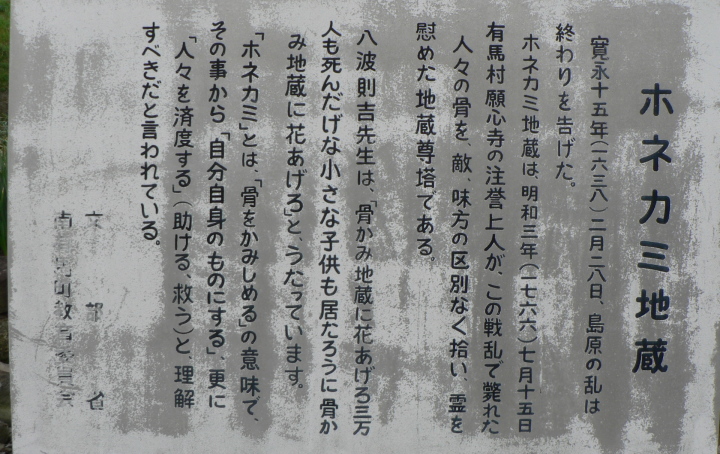 ホネカミ地蔵
寛永十五年(一六三八)二月二八日、島原の乱は
終わりを告げた。
ホネカミ地蔵は、明和三年(一七六六)七月十五日
有馬村願心寺の注誉上人が、この戦乱で斃れた
人々の骨を、敵、味方の区別なく拾い、霊を
慰めた地蔵尊塔である。
八波則吉先生は、「骨かみ地蔵に花あげろ三万
人も死んだげな小さな子供も居たろうに骨か
み地蔵に花あげろ」と、うたっています。
「ホネカミ」とは、「骨をかみしめる」の意味で、
その事から「自分自身のものにする」、更に
「人々を済度する」(助ける、救う)と、理解
すべきだと言われている。
文部省
南 町教育委員会